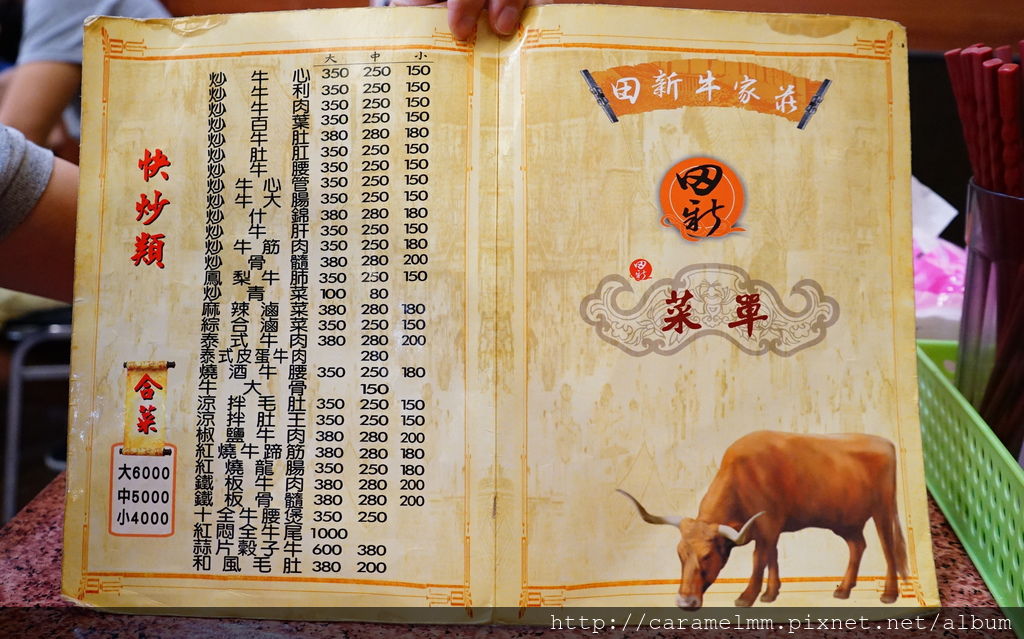 大 中 小
炒牛心 350 250 150
炒牛利 350 250 150
炒牛肉 350 250 150
炒百葉 350 250 150
炒牛肚 380 280 180
炒肚肛 350 250 150
炒牛腰 350 250 150
炒牛心管 350 250 150
炒牛大腸 350 250 150
炒什錦 380 280 180
炒牛肝 350 250 150
炒牛筋肉 350 250 180
炒骨髓 380 280 200
鳳梨牛肺 350 250 150
炒青菜 100 80
麻辣滷菜 380 280 180
綜合滷菜 350 250 150
泰式牛肉 380 280 200
泰式皮蛋牛肉 280
燒酒牛腰 350 250 180
牛大骨 150
涼拌毛肚 350 250 150
涼拌肚王 350 250 150
椒鹽牛肉 380 280 200
紅燒牛蹄筋 380 280 180
紅燒龍腸 350 250 180
鐵板牛肉 380 280 200
鐵板骨髓 380 280 200
十全牛腰煲 350 250
紅悶全牛尾 1000
蒜片骰子牛 600 380
和風毛肚 380 200
快炒類
合菜
大6000
中5000
小4000
田新牛家莊
田新
田新
菜單
http://caramelmm.pixnet.net/album